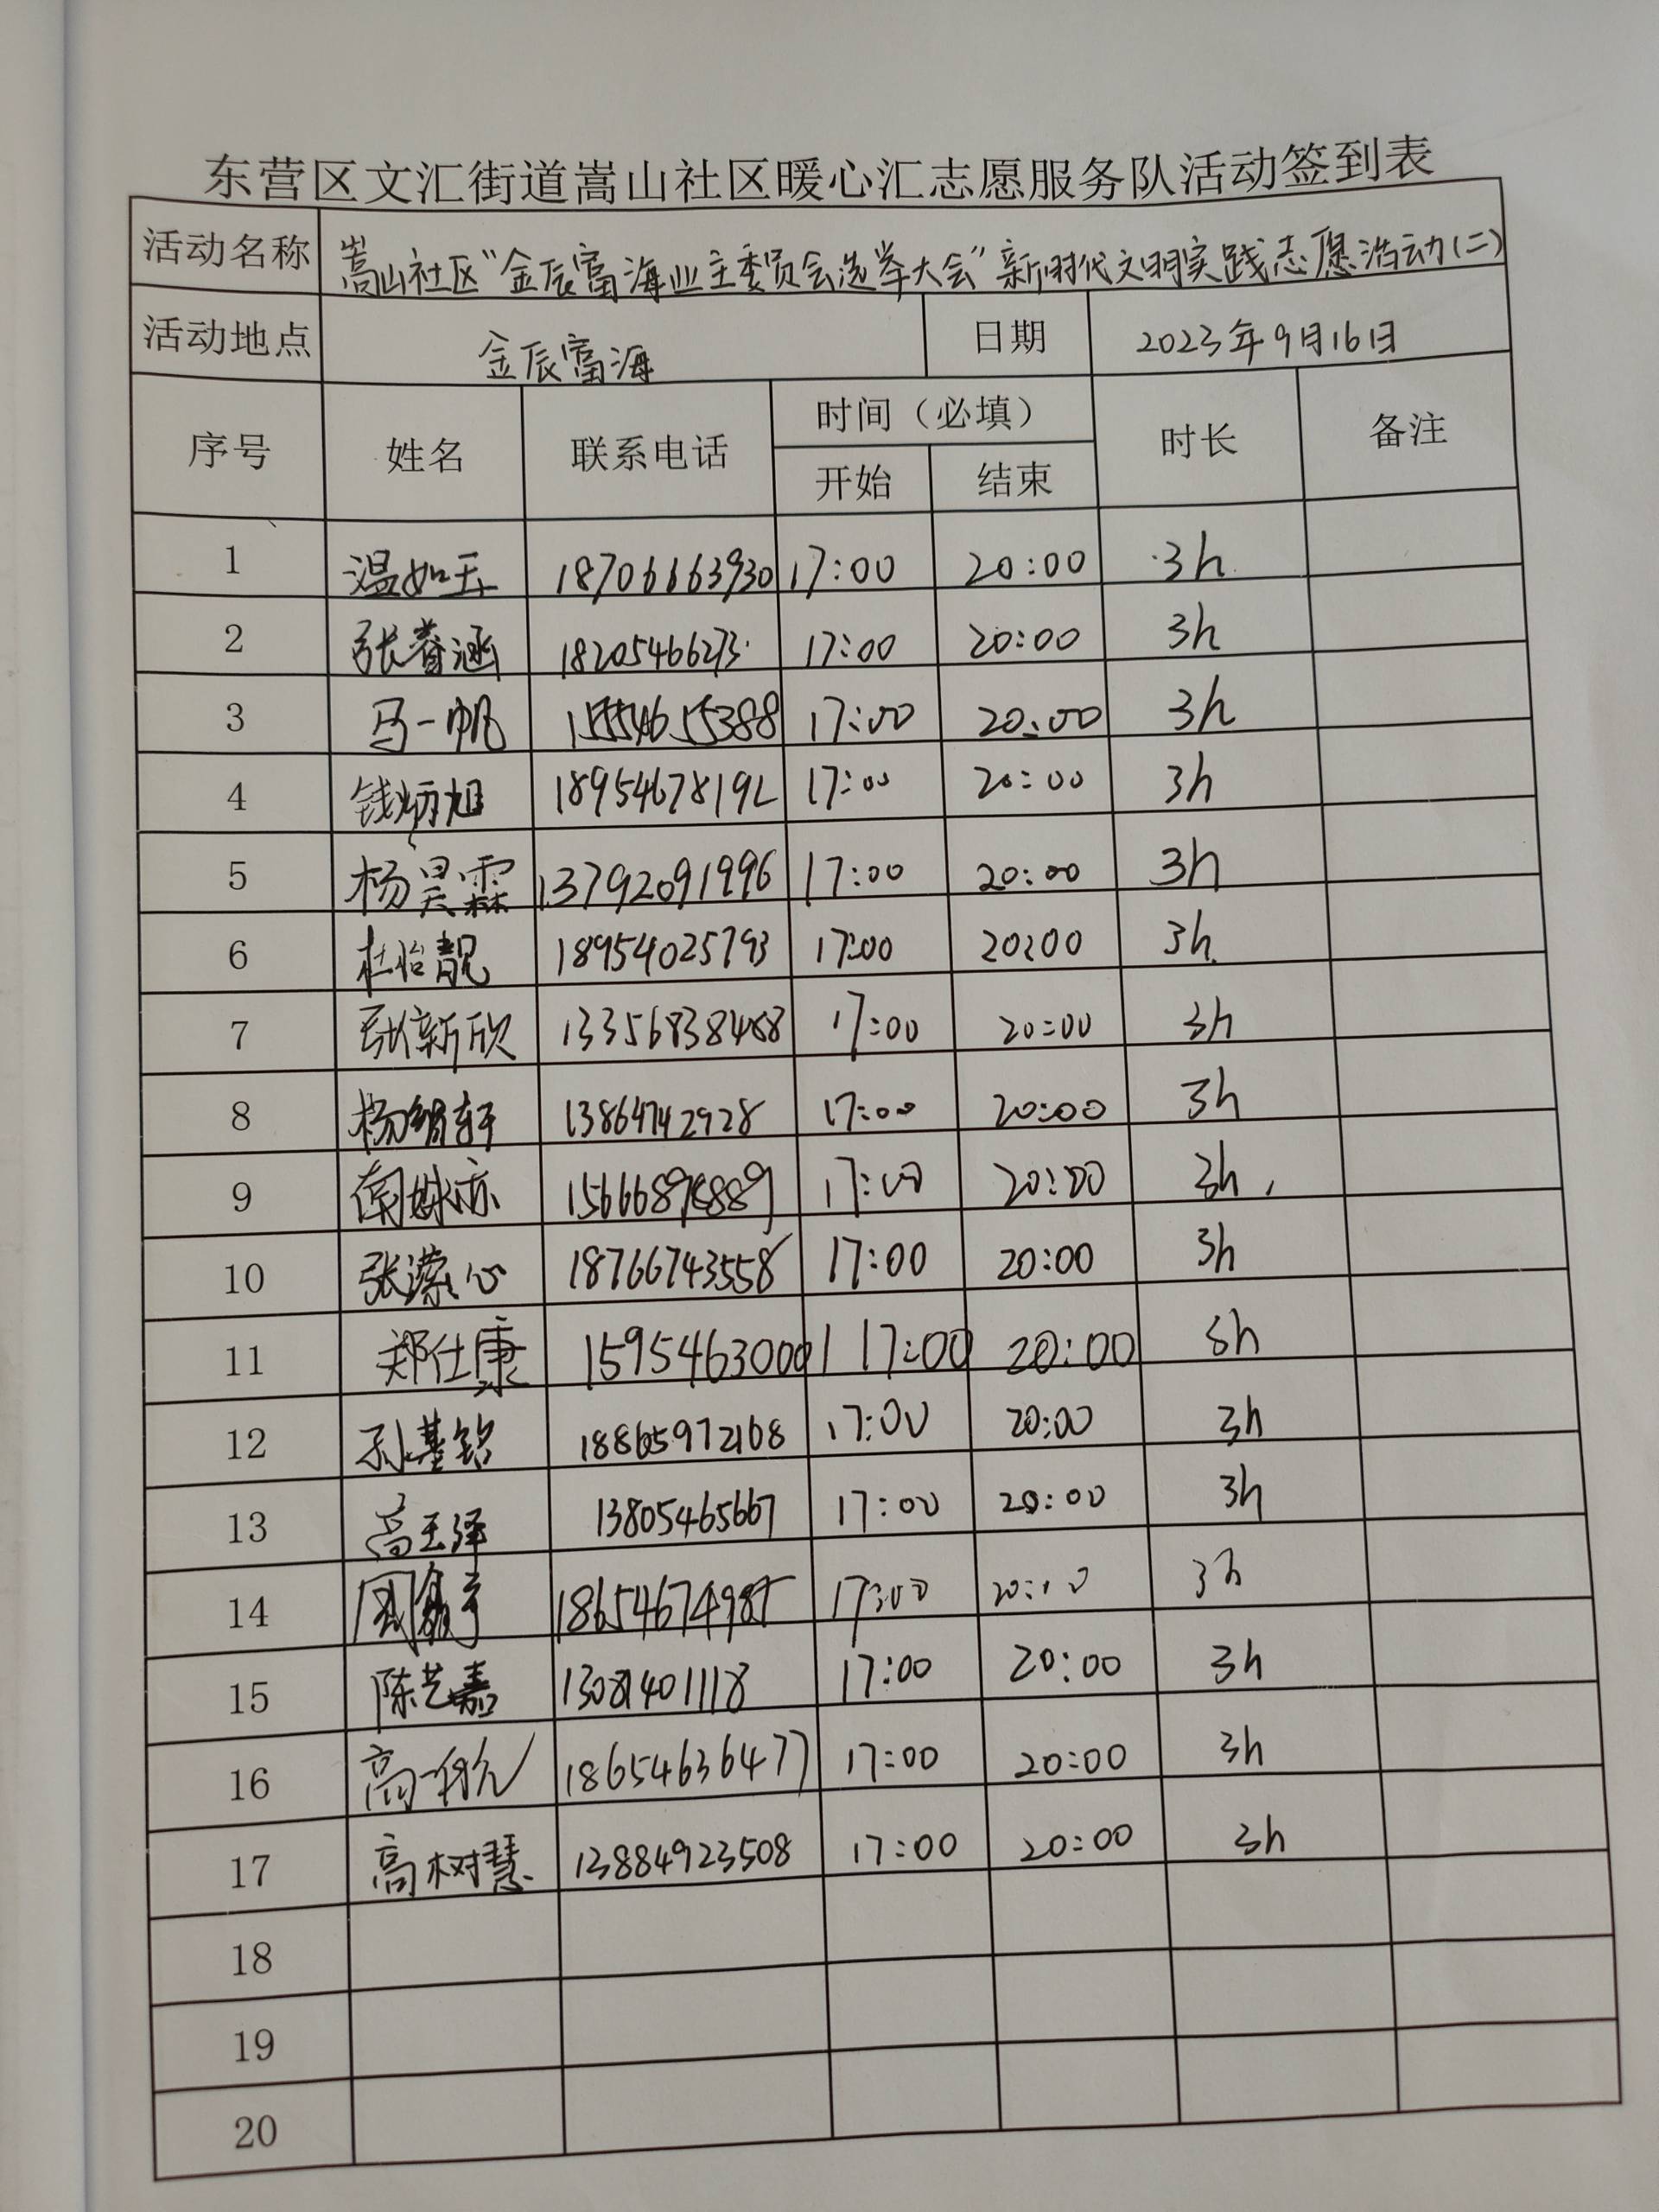 东营区文汇街道嵩山社区暖心汇志愿服务队活动签到表
活动名称 嵩山社区“金辰富海业主委员会选举大会”新时代文明实践志愿活动(二)
活动地点 金辰富海 日期 2023年9月16日
序号 姓名 联系电话 时间（必填） 时长 备注
开始 结束
1 温如玉 18706663930 17:00 20:00 3h
2 张睿涵 17:00 20:00 3h
3 马一帆 15554655388 17:00 20:00 3h
4 钱炳旭 18954678192 17:00 20:00 3h
5 杨昊霖 13792091996 17:00 20:00 3h
6 杜怡靓 18954025793 17:00 20:00 3h
7 张新欣 13356838488 17:00 20:00 3h
8 13864742928 17:00 20:00 3h
9 17:00 20:00 3h
10 张潆心 18766743558 17:00 20:00 3h
11 郑仕康 15954630001 17:00 20:00 3h
12 孙基铭 18865972168 17:00 20:00 3h
13 高玉泽 13805465667 17:00 20:00 3h
14 17:00 20:00 3h
15 陈艺嘉 13081401118 17:00 20:00 3h
16 高一航 18654636477 17:00 20:00 3h
17 高树慧 13884923508 17:00 20:00 3h
18
19
20